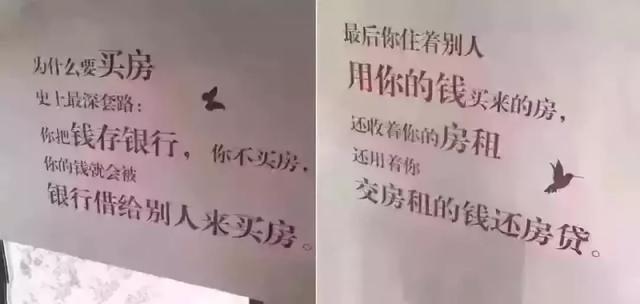 为什么要买房
史上最深套路：
你把钱存银行，你不买房，
你的钱就会被
银行借给别人来买房。
最后你住着别人
用你的钱买来的房，
还收着你的房租
还用着你
交房租的钱还房贷。